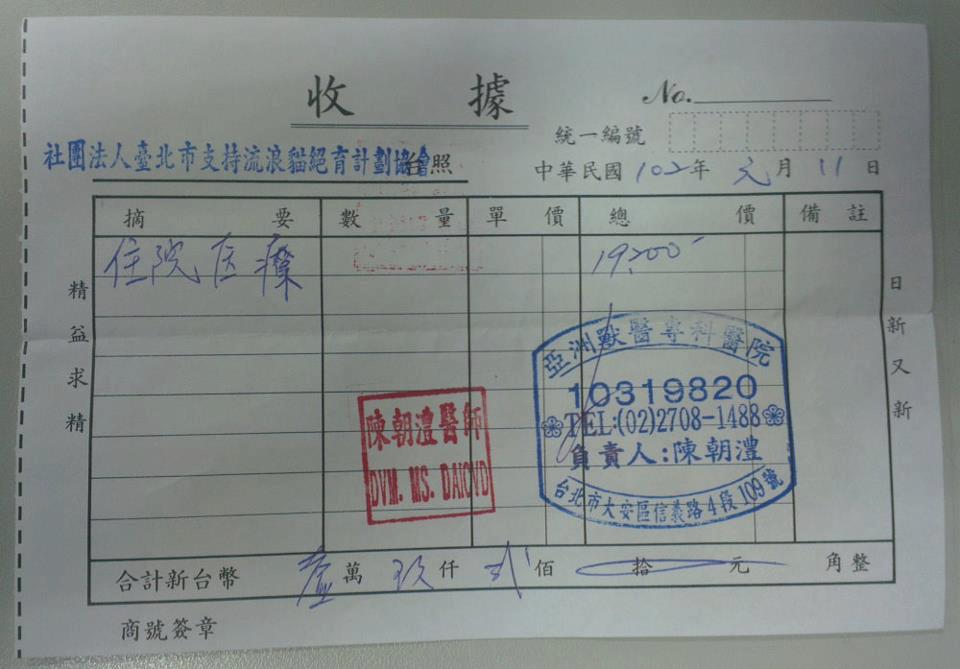 收據
No.
統一編號
社團法人臺北市支持流浪貓絕育計劃協會 台照
中華民國 102 年 元 月 11 日
摘要 數量 單價 總價 備註
住院医療 19,200
精益求精
日新又新
亞洲獸醫專科醫院
10319820
TEL:(02)2708-1488
負責人:陳朝澧
台北市大安區信義路4段109號
陳朝澧醫師
DVM. MS. DAICVD
合計新台幣 壹 萬 玖 仟 貳 佰 拾 元 角整
商號簽章